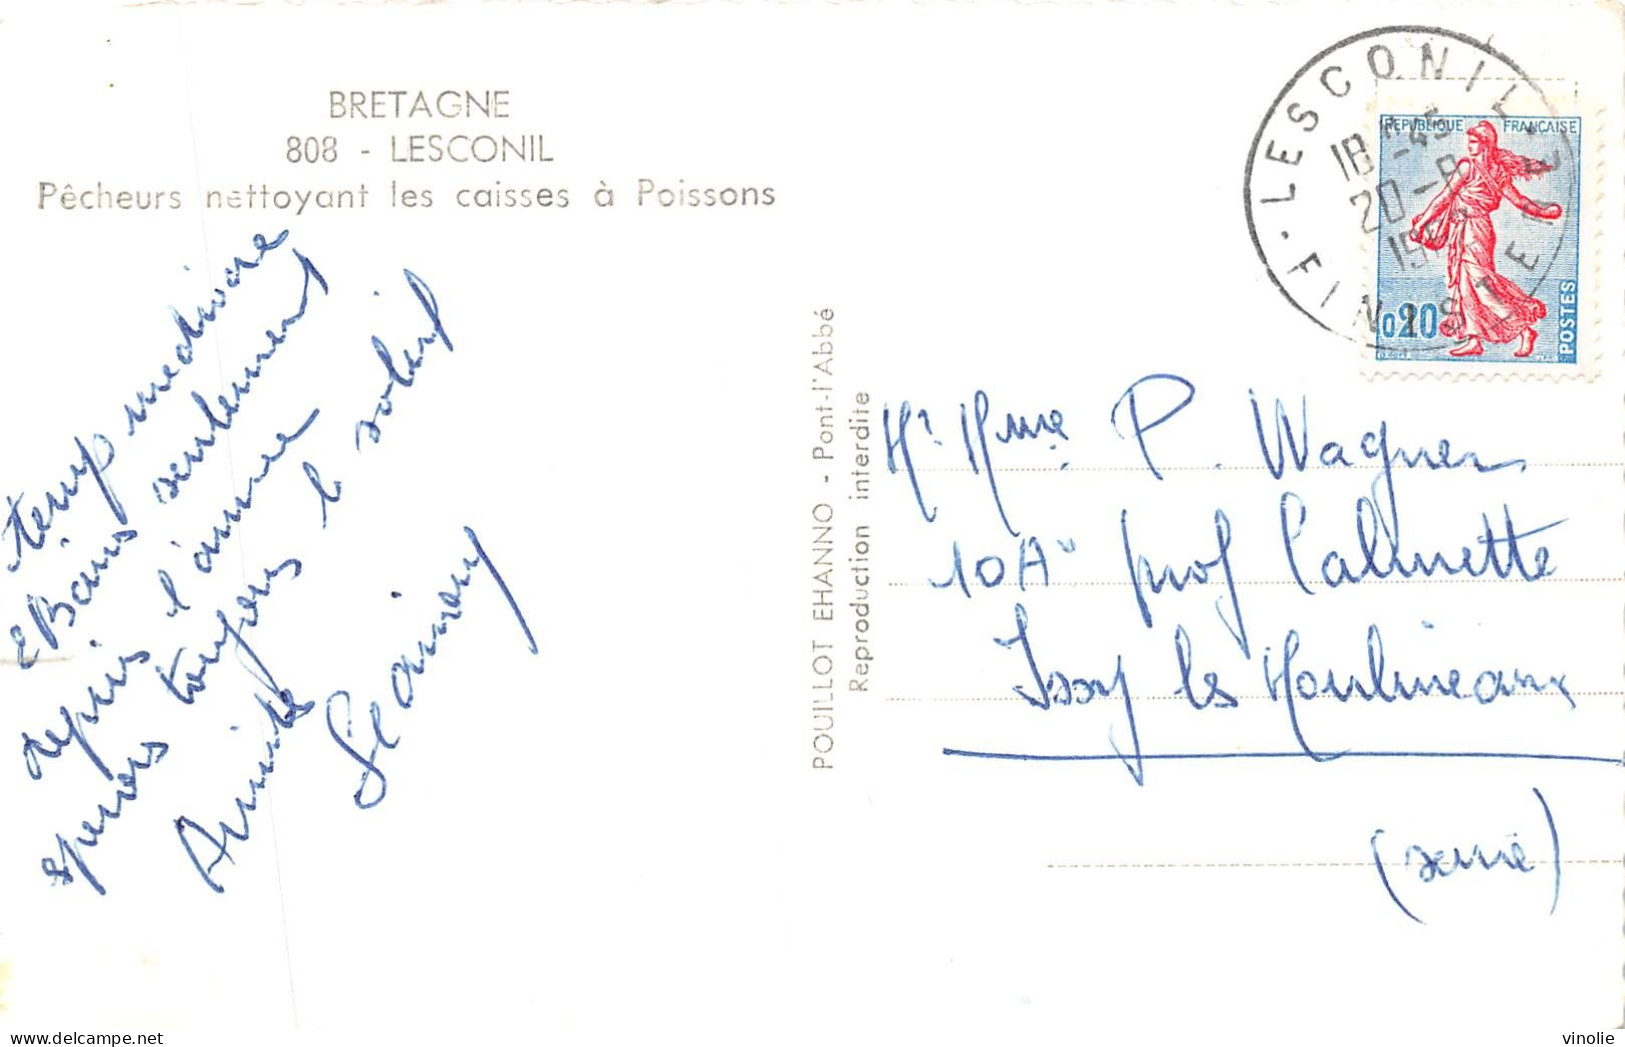 BRETAGNE
808 - LESCONIL
Pêcheurs nettoyant les caisses à Poissons
temps mediocre
2 Bains seulement
depuis l'arrivee
esperons toujours le soleil
Amitiés
POUILLOT EHANNO - Pont-l'Abbé
Reproduction interdite
LESCONIL
FINISTERE
18H-45
20-8
REPUBLIQUE FRANÇAISE
0,20
POSTES
Mr Mme P. Wagner
10 A prof Calmette
Issy les Moulineaux
(seine)
vinolie